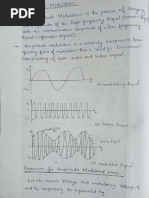 Modulation
Amplitude Modulation is the process of changing
amplitude of the high frequency signal (carrier signal)
with the instantaneous amplitude of a low frequency
signal
Amplitude modulation is a relatively inexpensive low-
quality form of modulation that is used for commercial
broadcasting of both audio and video signal
(a) modulating signal
(b) Carrier signal
Expression for Amplitude Modulated Wave
Let the carrier voltage and modulating voltage
and Vm respectively, be represented by